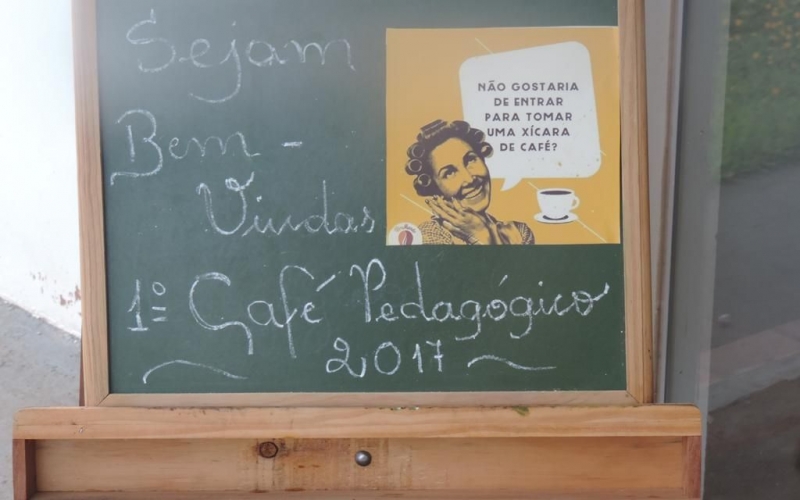 Sejam
Bem-
Vindas
NÃO GOSTARIA
DE ENTRAR
PARA TOMAR
UMA XÍCARA
DE CAFÉ?
1º Café Pedagógico
2017